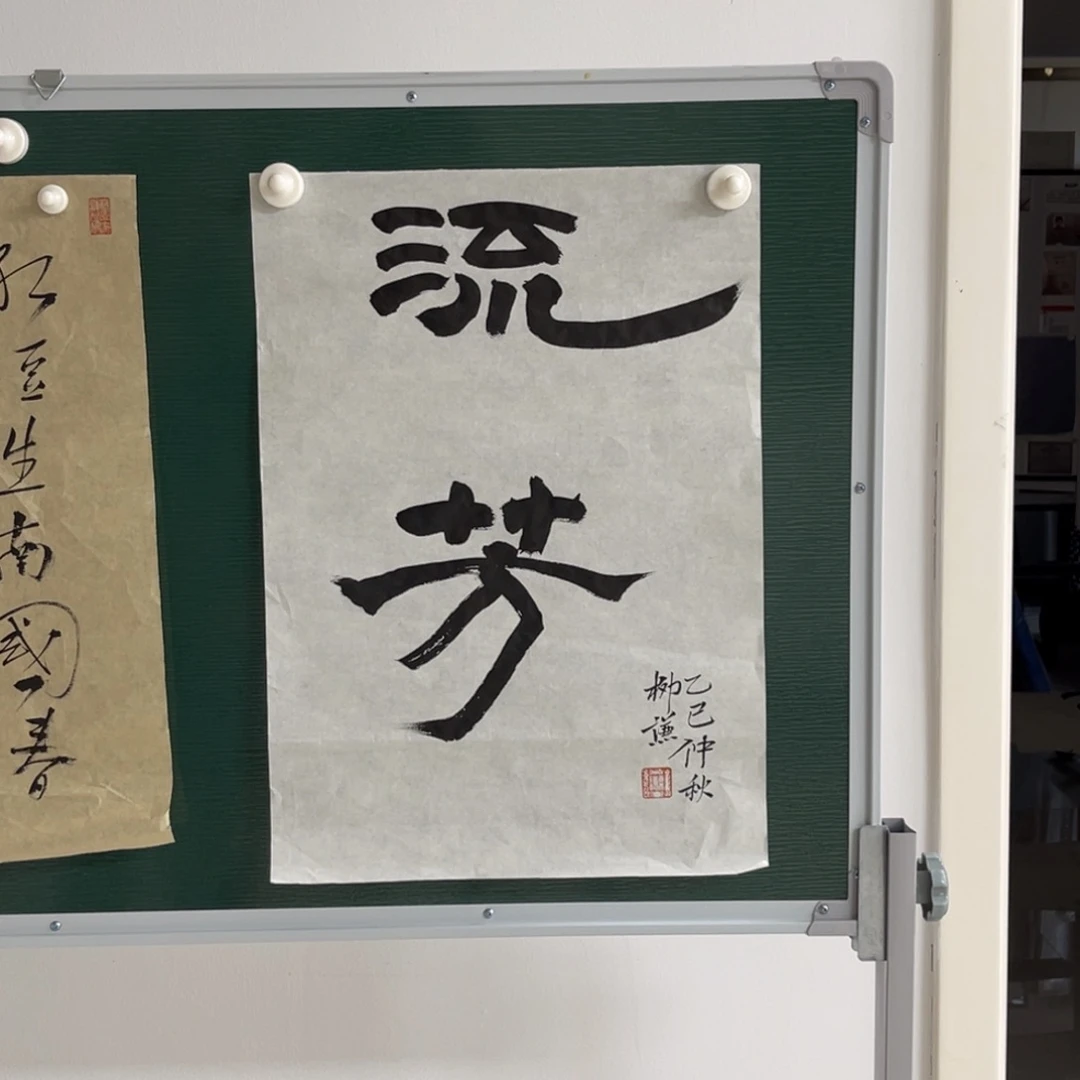 流芳
乙巳仲秋
柳谦
红豆生南國
春